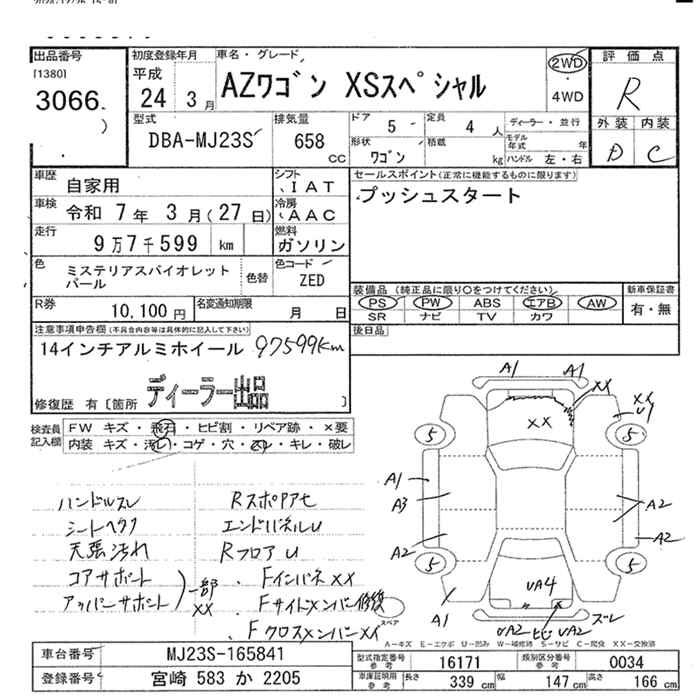 出品番号
[1380]
3066
初度登録年月
平成
24 3月
車名・グレード
AZワゴン XSスペシャル
2WD
4WD
評価点
R
外装 内装
D C
型式
DBA-MJ23S
排気量
658
CC
ドア 5
定員 4 人
形状 ワゴン
積載 kg
ディーラー・並行
モデル年式 年
ハンドル 左・右
車歴 自家用
シフト IAT
車検 令和 7年 3月(27日)
冷房 AAC
走行 9万7千599 km
燃料 ガソリン
色 ミステリアスバイオレットパール
色替
色コード ZED
セールスポイント(正常に機能するものに限ります)
プッシュスタート
R券 10,100円
名変通知期限 月 日
装備品(純正品に限り○をつけてください)
PS PW ABS エアB AW
SR ナビ TV カワ
新車保証書
有・無
後日品
注意事項申告欄(不具合内容等は具体的に記入して下さい)
14インチアルミホイール 97599Km
ディーラー出品
修復歴 有〔箇所 〕
検査員記入欄
FW キズ・飛石・ヒビ割・リペア跡・×要
内装 キズ・汚レ・コゲ・穴・スレ・キレ・破レ
ハンドルスレ
シートヘタリ
天張汚れ
コアサポート
アッパーサポート
一部
XX
Rスポアセ
エンドパネルU
RフロアU
FインパネXX
Fサイドメンバー修復
FクロスメンバーXX
スペア
A1 A1
XX
XX
XX
U1
5 5
A1
A3
A2
A2
A2
5 5
UA4
A1
UA2 ヒビ UA2
ズレ
A-キズ E-エクボ U-凹み W-補修跡 S-サビ C-腐食 XX-交換済
車台番号 MJ23S-165841
登録番号 宮崎 583 か 2205
型式指定番号 参考 16171
類別区分番号 参考 0034
車庫証明用 参考 長さ 339 cm 幅 147 cm 高さ 166 cm